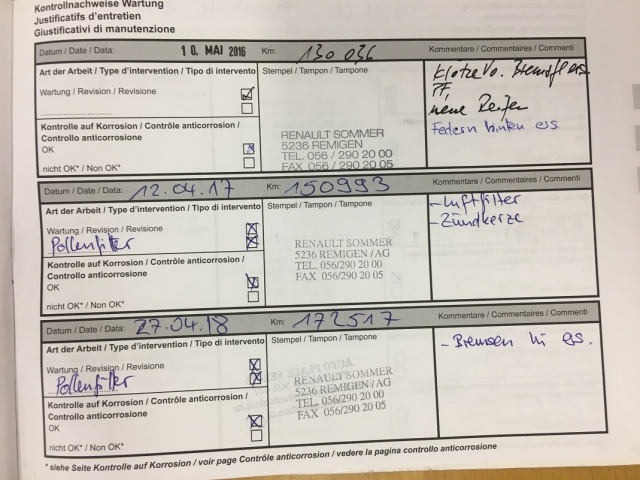 Kontrollnachweise Wartung
Justificatifs d'entretien
Giustificativi di manutenzione
Datum / Date / Data: 10. MAI 2016 Km: 130 036 Kommentare / Commentaires / Commenti
Art der Arbeit / Type d'intervention / Tipo di intervento Stempel / Tampon / Tampone
Klötze Vo.
Wartung / Revision / Revisione
PF,
neue Reifen
Federn hinten ers.
Kontrolle auf Korrosion / Contrôle anticorrosion /
Controllo anticorrosione
OK
nicht OK* / Non OK*
RENAULT SOMMER
5236 REMIGEN
TEL. 056 / 290 20 00
FAX 056 / 290 20 05
Datum / Date / Data: 12.04.17 Km: 150993 Kommentare / Commentaires / Commenti
Art der Arbeit / Type d'intervention / Tipo di intervento Stempel / Tampon / Tampone
- Luftfilter
- Zündkerze
Wartung / Revision / Revisione
Pollenfilter
Kontrolle auf Korrosion / Contrôle anticorrosion /
Controllo anticorrosione
OK
nicht OK* / Non OK*
RENAULT SOMMER
5236 REMIGEN /AG
TEL. 056/290 20 00
FAX 056/290 20 05
Datum / Date / Data: 27.04.18 Km: 172517 Kommentare / Commentaires / Commenti
Art der Arbeit / Type d'intervention / Tipo di intervento Stempel / Tampon / Tampone
- Bremsen hi ers.
Wartung / Revision / Revisione
Pollenfilter
Kontrolle auf Korrosion / Contrôle anticorrosion /
Controllo anticorrosione
OK
nicht OK* / Non OK*
RENAULT SOMMER
5236 REMIGEN/AG
TEL. 056/290 20 00
FAX 056/290 20 05
* siehe Seite Kontrolle auf Korrosion / voir page Contrôle anticorrosion / vedere la pagina controllo anticorrosione